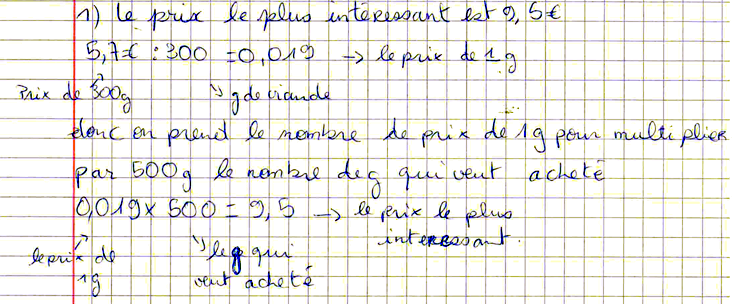 1) Le prix le plus intéressant est 9,5€
5,7€ : 300 = 0,019 → le prix de 1g
Prix de 300g ↘ g de viande
donc on prend le nombre de prix de 1g pour multiplier
par 500g le nombre de g qui veut acheté
0,019 x 500 = 9,5 → le prix le plus
interessant.
le prix de 1g ↘ le g qui veut acheté